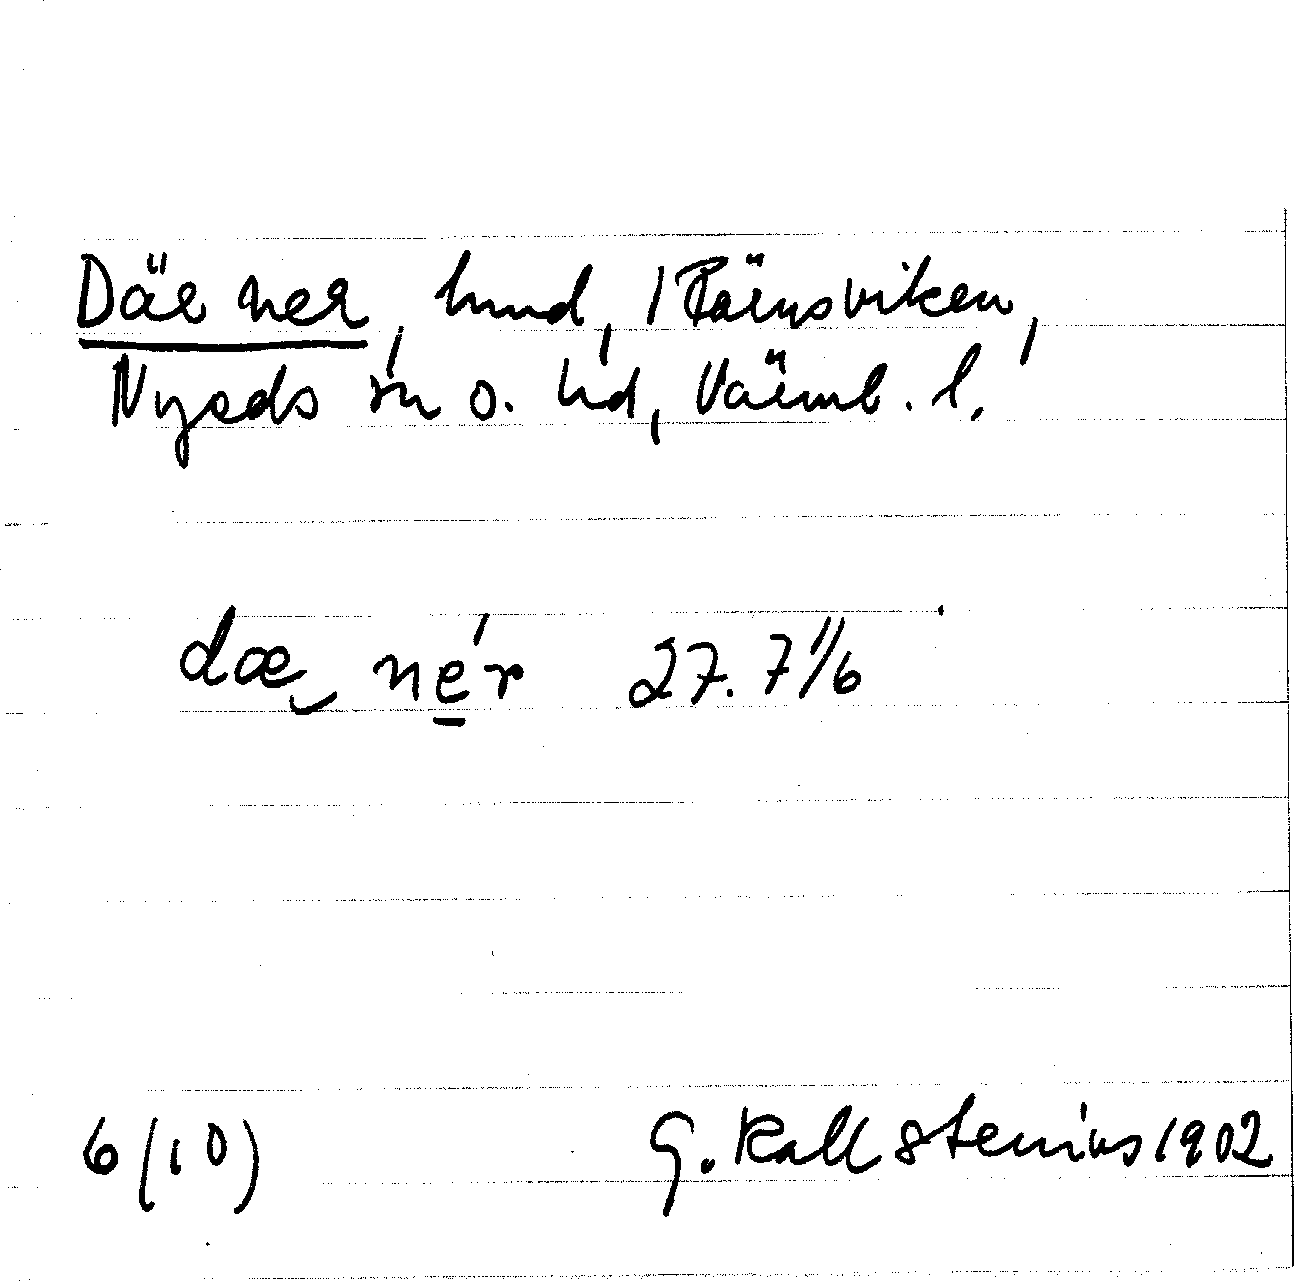 Där ner, hmd, / Färnsviken,
Nyeds sn o. hd, Värml. l.
dæ nér 27. 7 1/6
6 (10) G. Kallstenius 1902